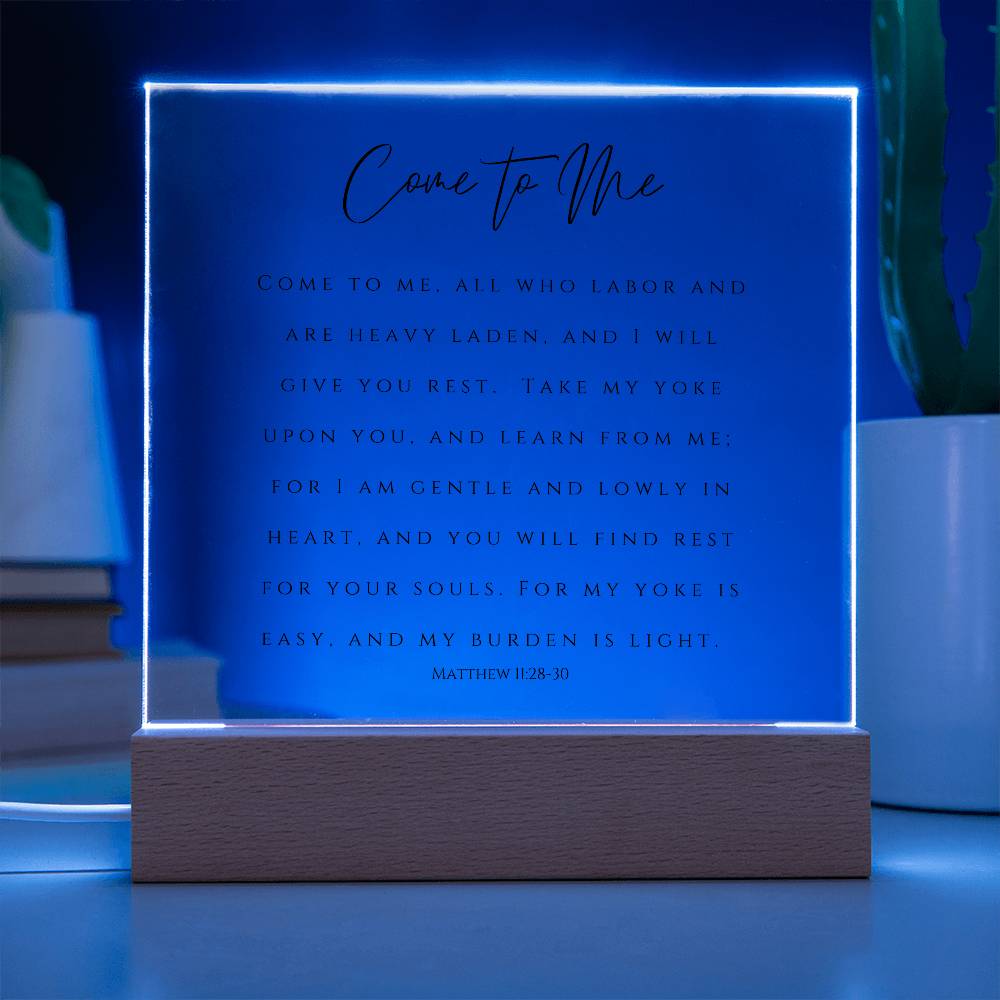 Come to Me
Come to me, all who labor and
are heavy laden, and I will
give you rest.  Take my yoke
upon you, and learn from me;
for I am gentle and lowly in
heart, and you will find rest
for your souls. For my yoke is
easy, and my burden is light.
Matthew 11:28-30